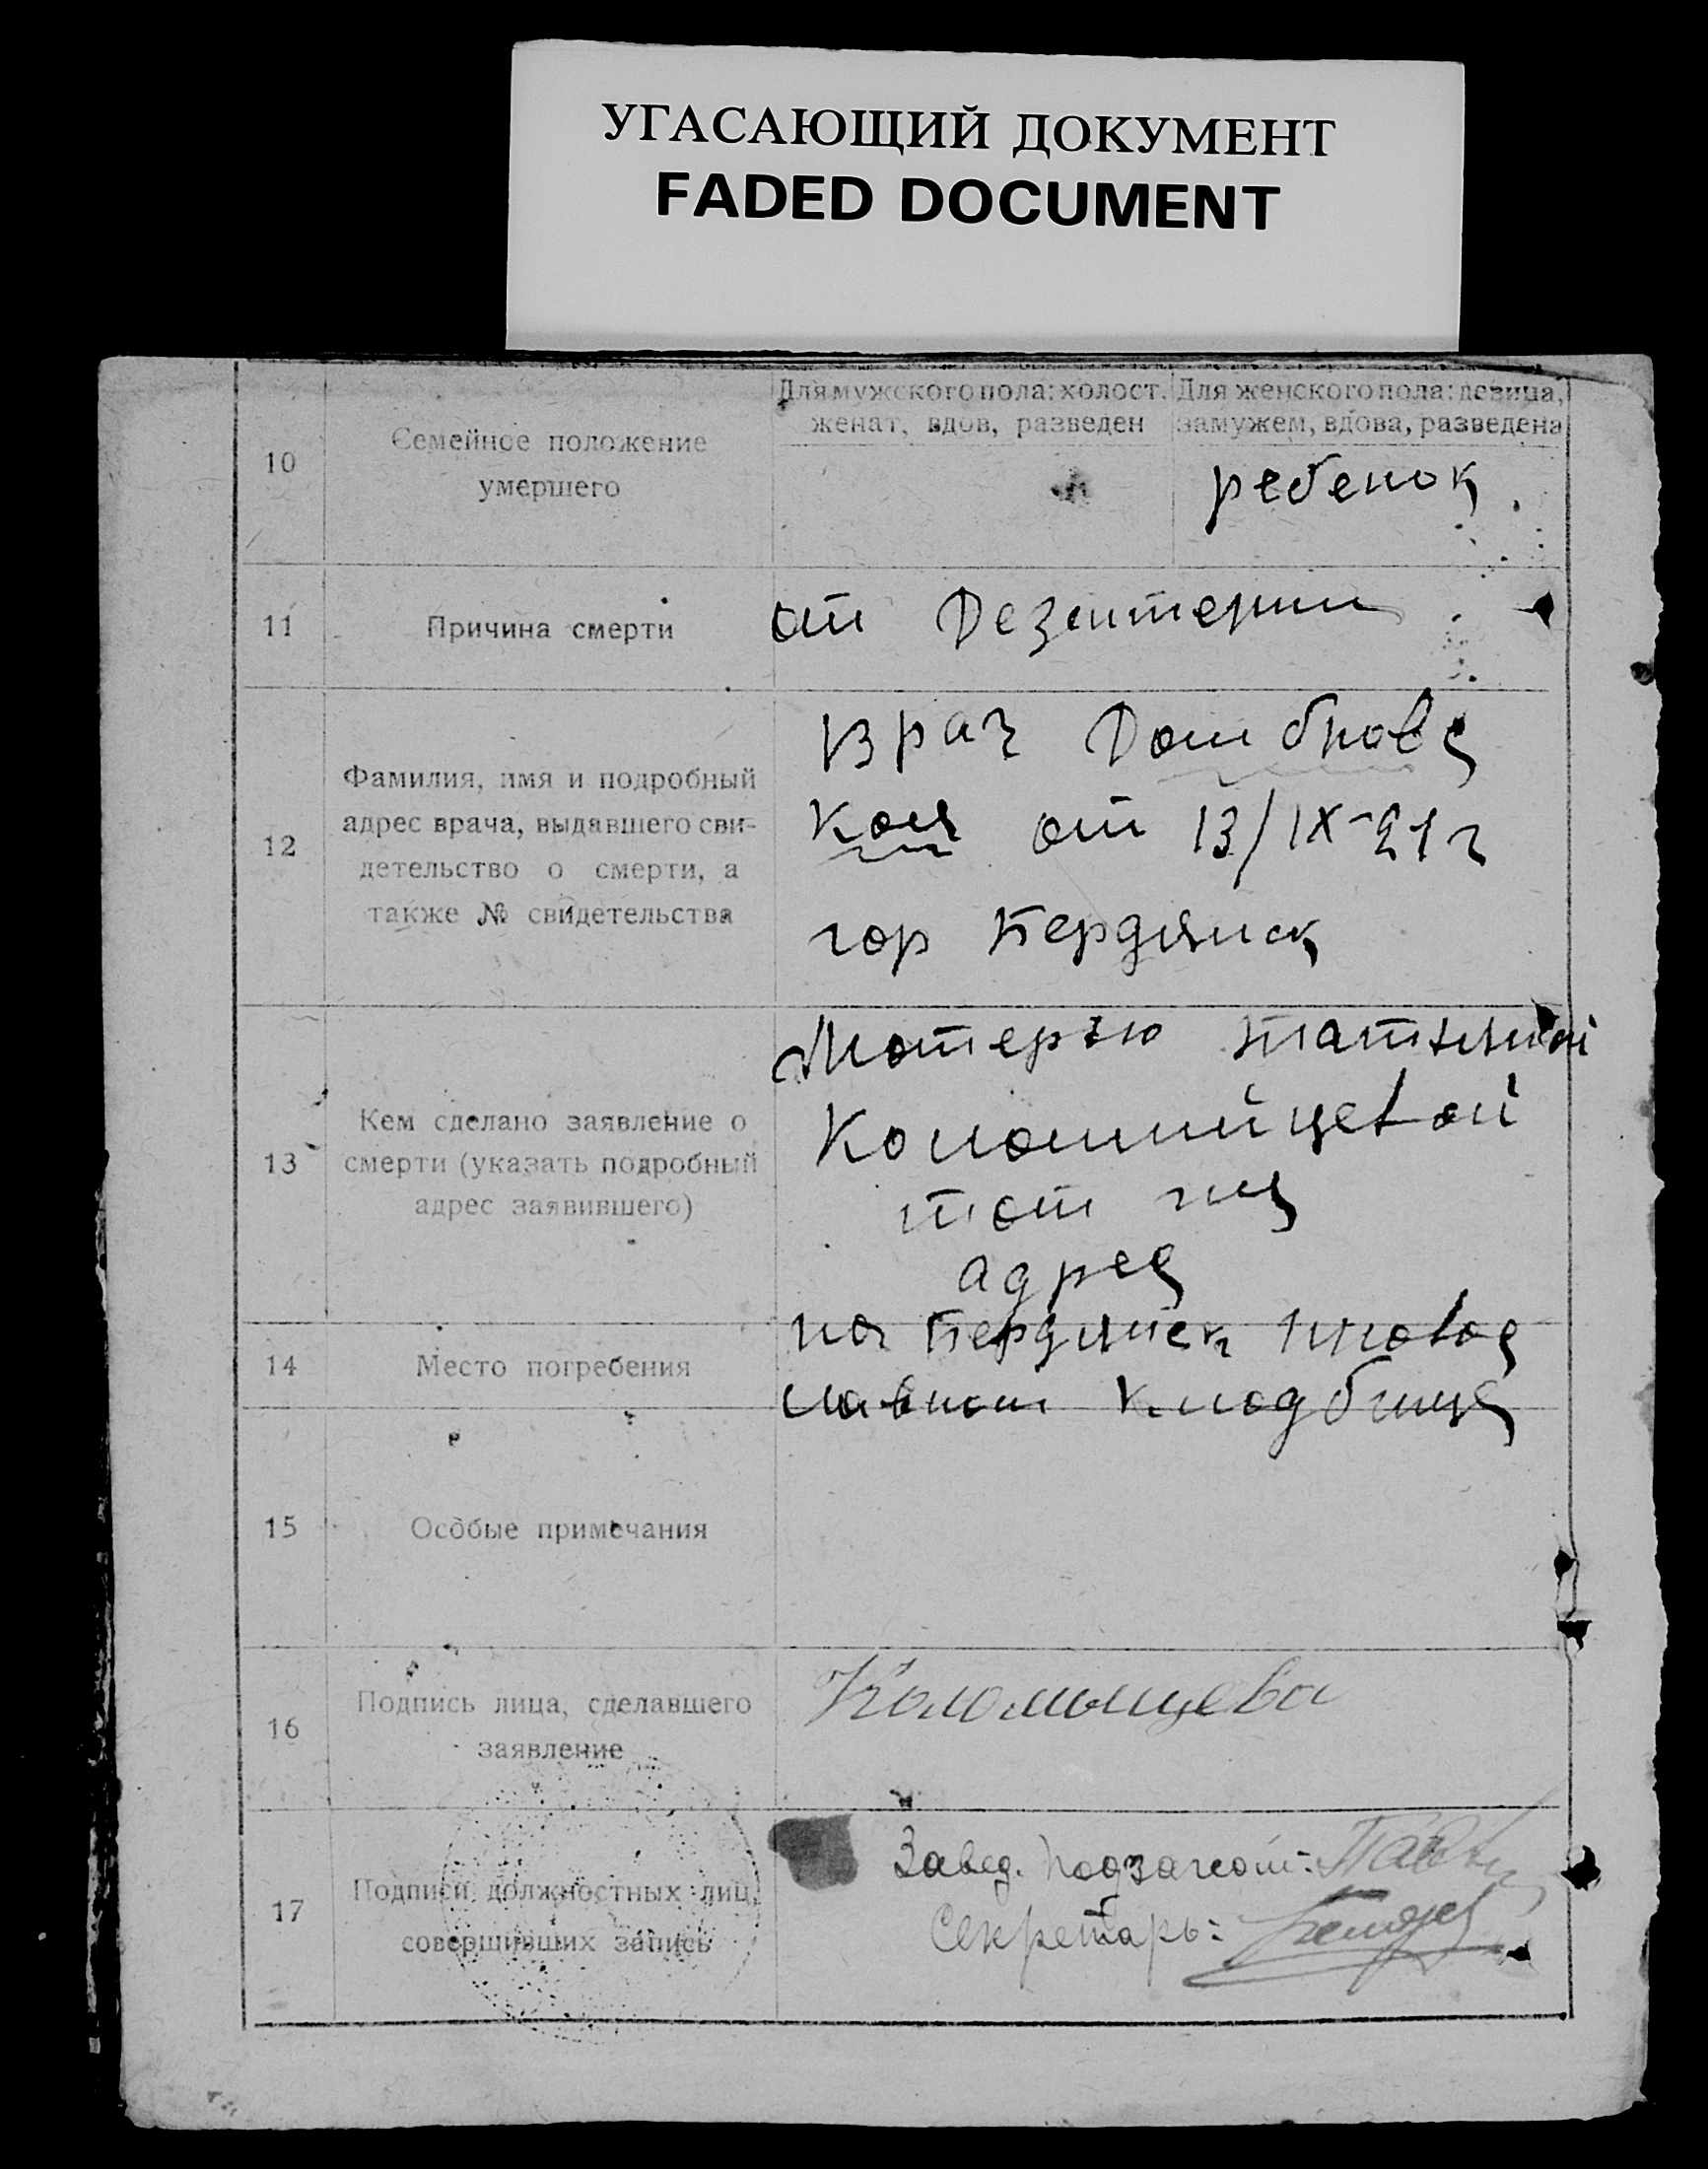 УГАСАЮЩИЙ ДОКУМЕНТ
FADED DOCUMENT
10
Семейное положение
умершего
Для мужского пола: холост.
женат, вдов, разведен
Для женского пола: девица,
замужем, вдова, разведена
ребенок
11
Причина смерти
от Дезинтерии
12
Фамилия, имя и подробный
адрес врача, выдавшего сви-
детельство о смерти, а
также № свидетельства
врач Домбровс
кая от 13/IX-21 г
гор Бердянск
13
Кем сделано заявление о
смерти (указать подробный
адрес заявившего)
Матерью Татьяной
Коломийцевой
тот же
адрес
14
Место погребения
на Бердянск правос
лавном кладбище
15
Особые примечания
16
Подпись лица, сделавшего
заявление
Коломыцева
17
Подписи должностных лиц,
совершивших запись
Завед. Подзагсом:
Секретарь: